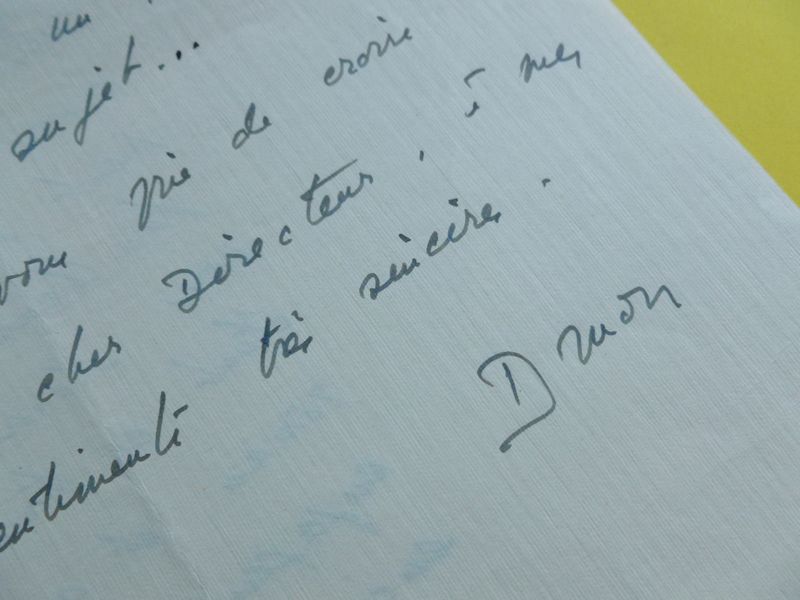 un
sujet...
vous prie de croire
cher Directeur, à mes
sentiments très sincères.
Druon